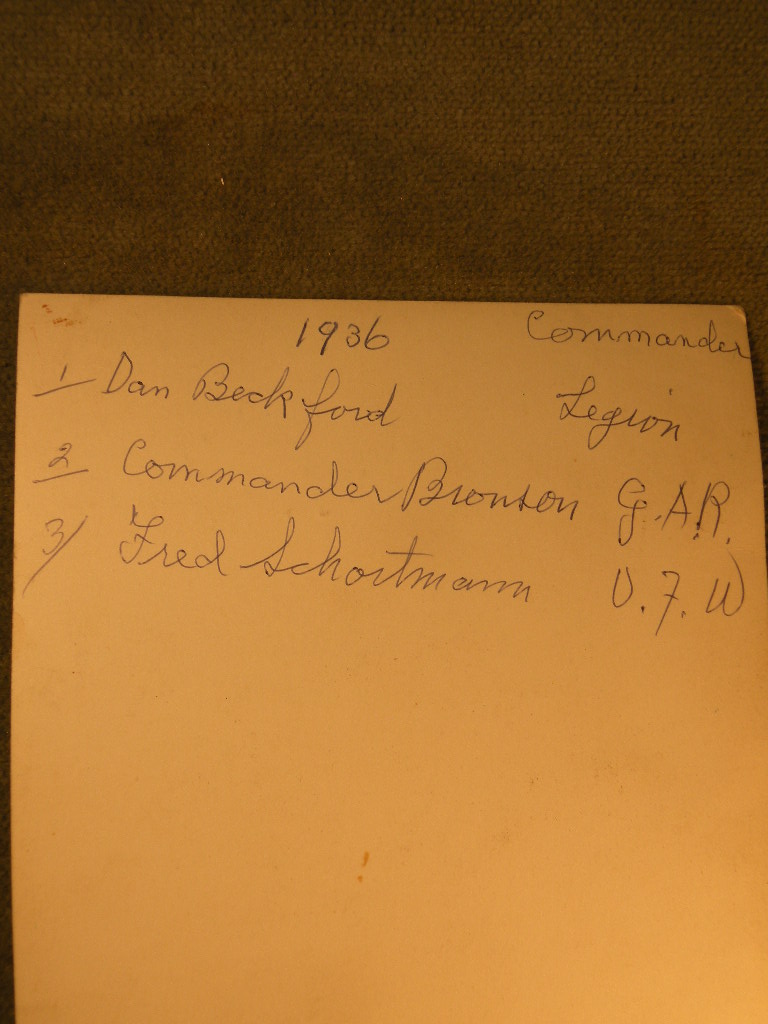 1936 Commander
1 Dan Beckford Legion
2 Commander Bronson G.A.R.
3/ Fred Schortmann V.F.W